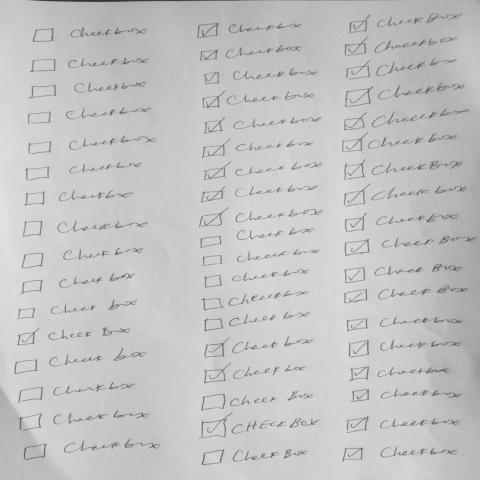 ☐ Checkbox
☐ Checkbox
☐ Checkbox
☐ Checkbox
☐ Checkbox
☐ Checkbox
☐ Checkbox
☐ Checkbox
☐ Check box
☐ Check box
☐ Check box
☑ Check Box
☐ Check box
☐ Checkbox
☐ Checkbox
☐ Checkbox
☑ Checkbox
☑ Checkbox
☑ Checkbox
☑ Checkbox
☑ Checkbox
☑ Checkbox
☑ Check box
☑ Checkbox
☑ Checkbox
☐ Check box
☐ Checkbox
☐ Checkbox
☐ Checkbox
☐ Checkbox
☑ Check box
☑ Check box
☐ Check Box
☑ CHECKBOX
☐ Check Box
☑ Check Box
☑ Checkbox
☑ Check box
☑ Checkbox
☑ Checkbox
☑ Checkbox
☑ Check Box
☑ Check box
☑ Checkbox
☑ Check Box
☑ Check Box
☑ Check Box
☑ Checkbox
☑ Checkbox
☑ Checkbox
☑ Checkbox
☑ Checkbox
☑ Checkbox